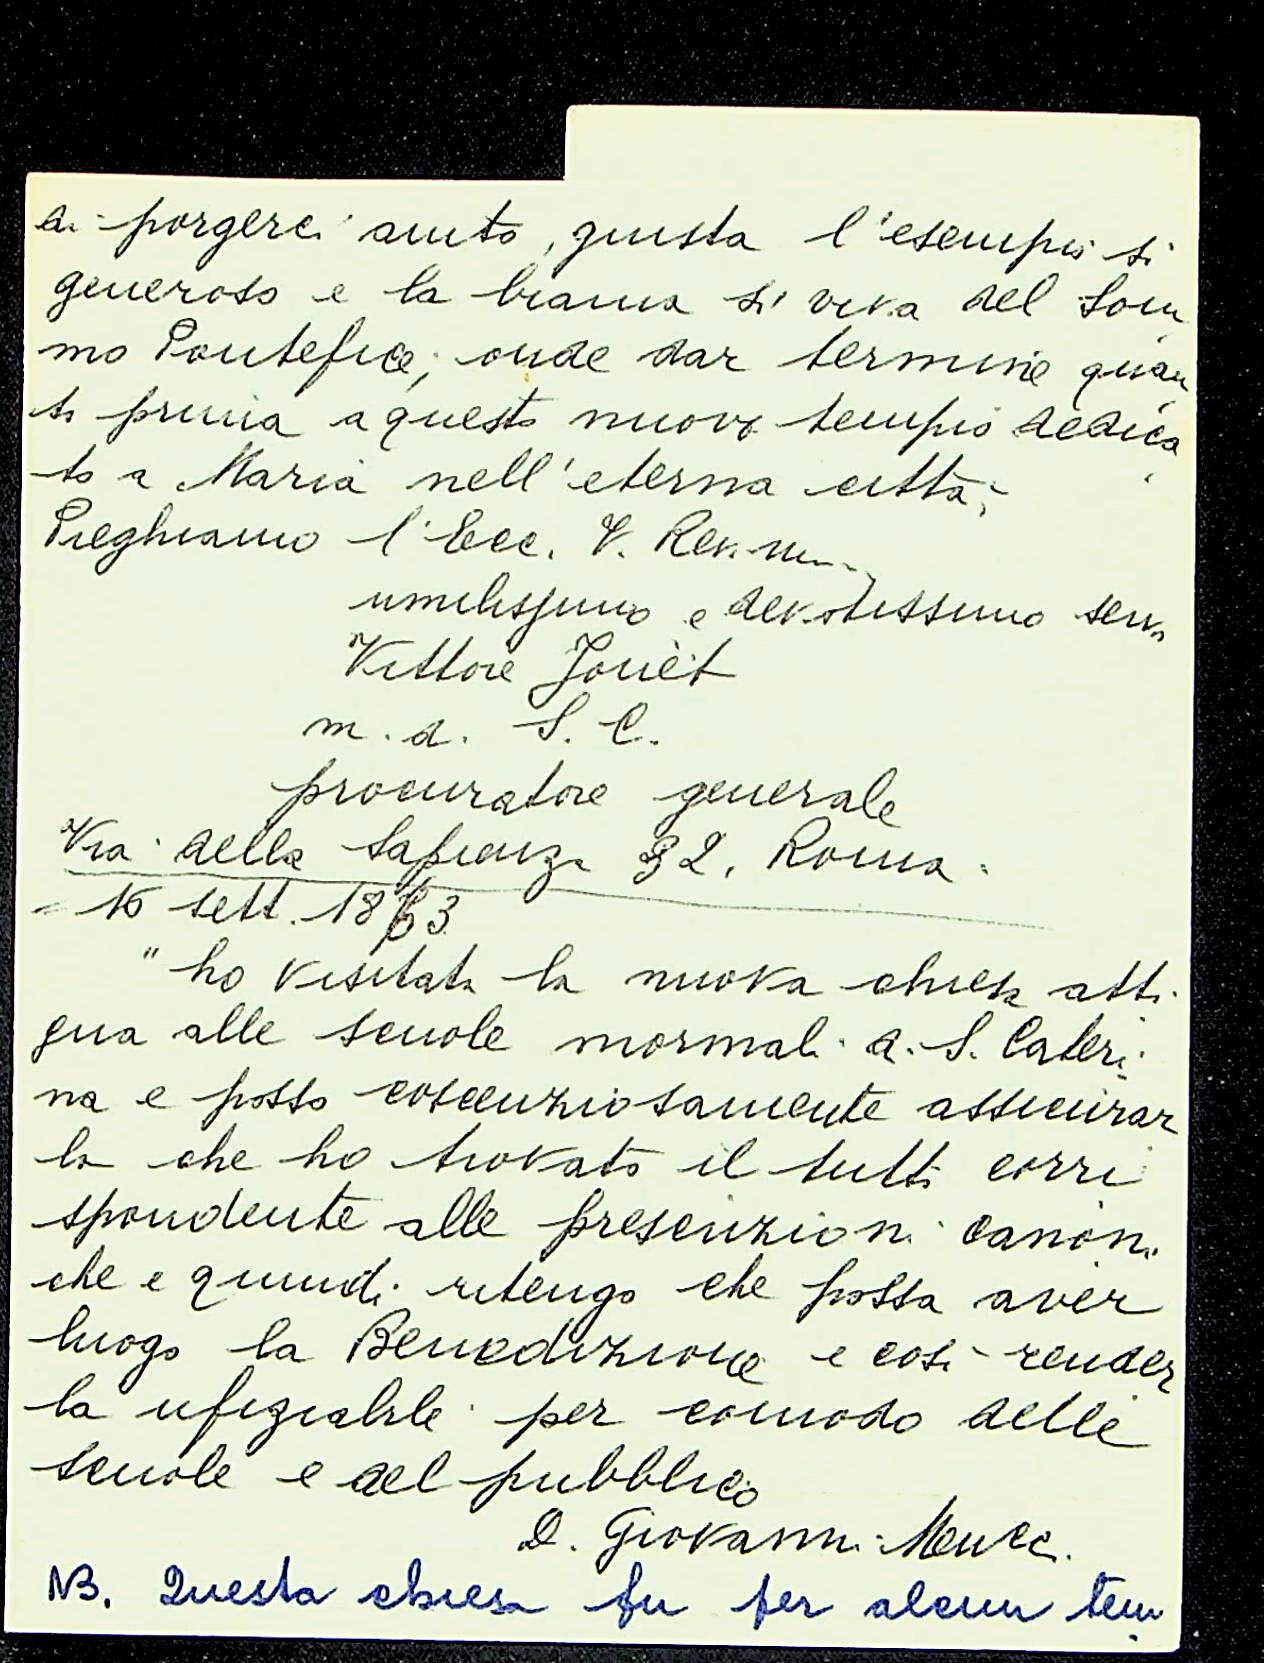 di porgerci aiuto, giusta l'esempio sì
generoso e la brama sì viva del Som
mo Pontefice, onde dar termine quan
to prima a questo nuovo tempio dedica
to a Maria nell'eterna città;
Preghiamo l'Ecc. V. Rev.m...
umilissimo e devotissimo serv.
Vittore Jouët
m. d. S. C.
procuratore generale
Via della Sapienza 32, Roma.
- 16 sett. 1883
"ho visitata la nuova chiesa atti
gua alle scuole normali di S. Cateri
na e posso coscienziosamente assicurar
la che ho trovato il tutto corri
spondente alle prescrizioni canoni
che e quindi ritengo che possa aver
luogo la Benedizione e così render
la ufiziabile per comodo delle
scuole e del pubblico
D. Giovanni Meucci.
NB. Questa chiesa fu per alcun tem